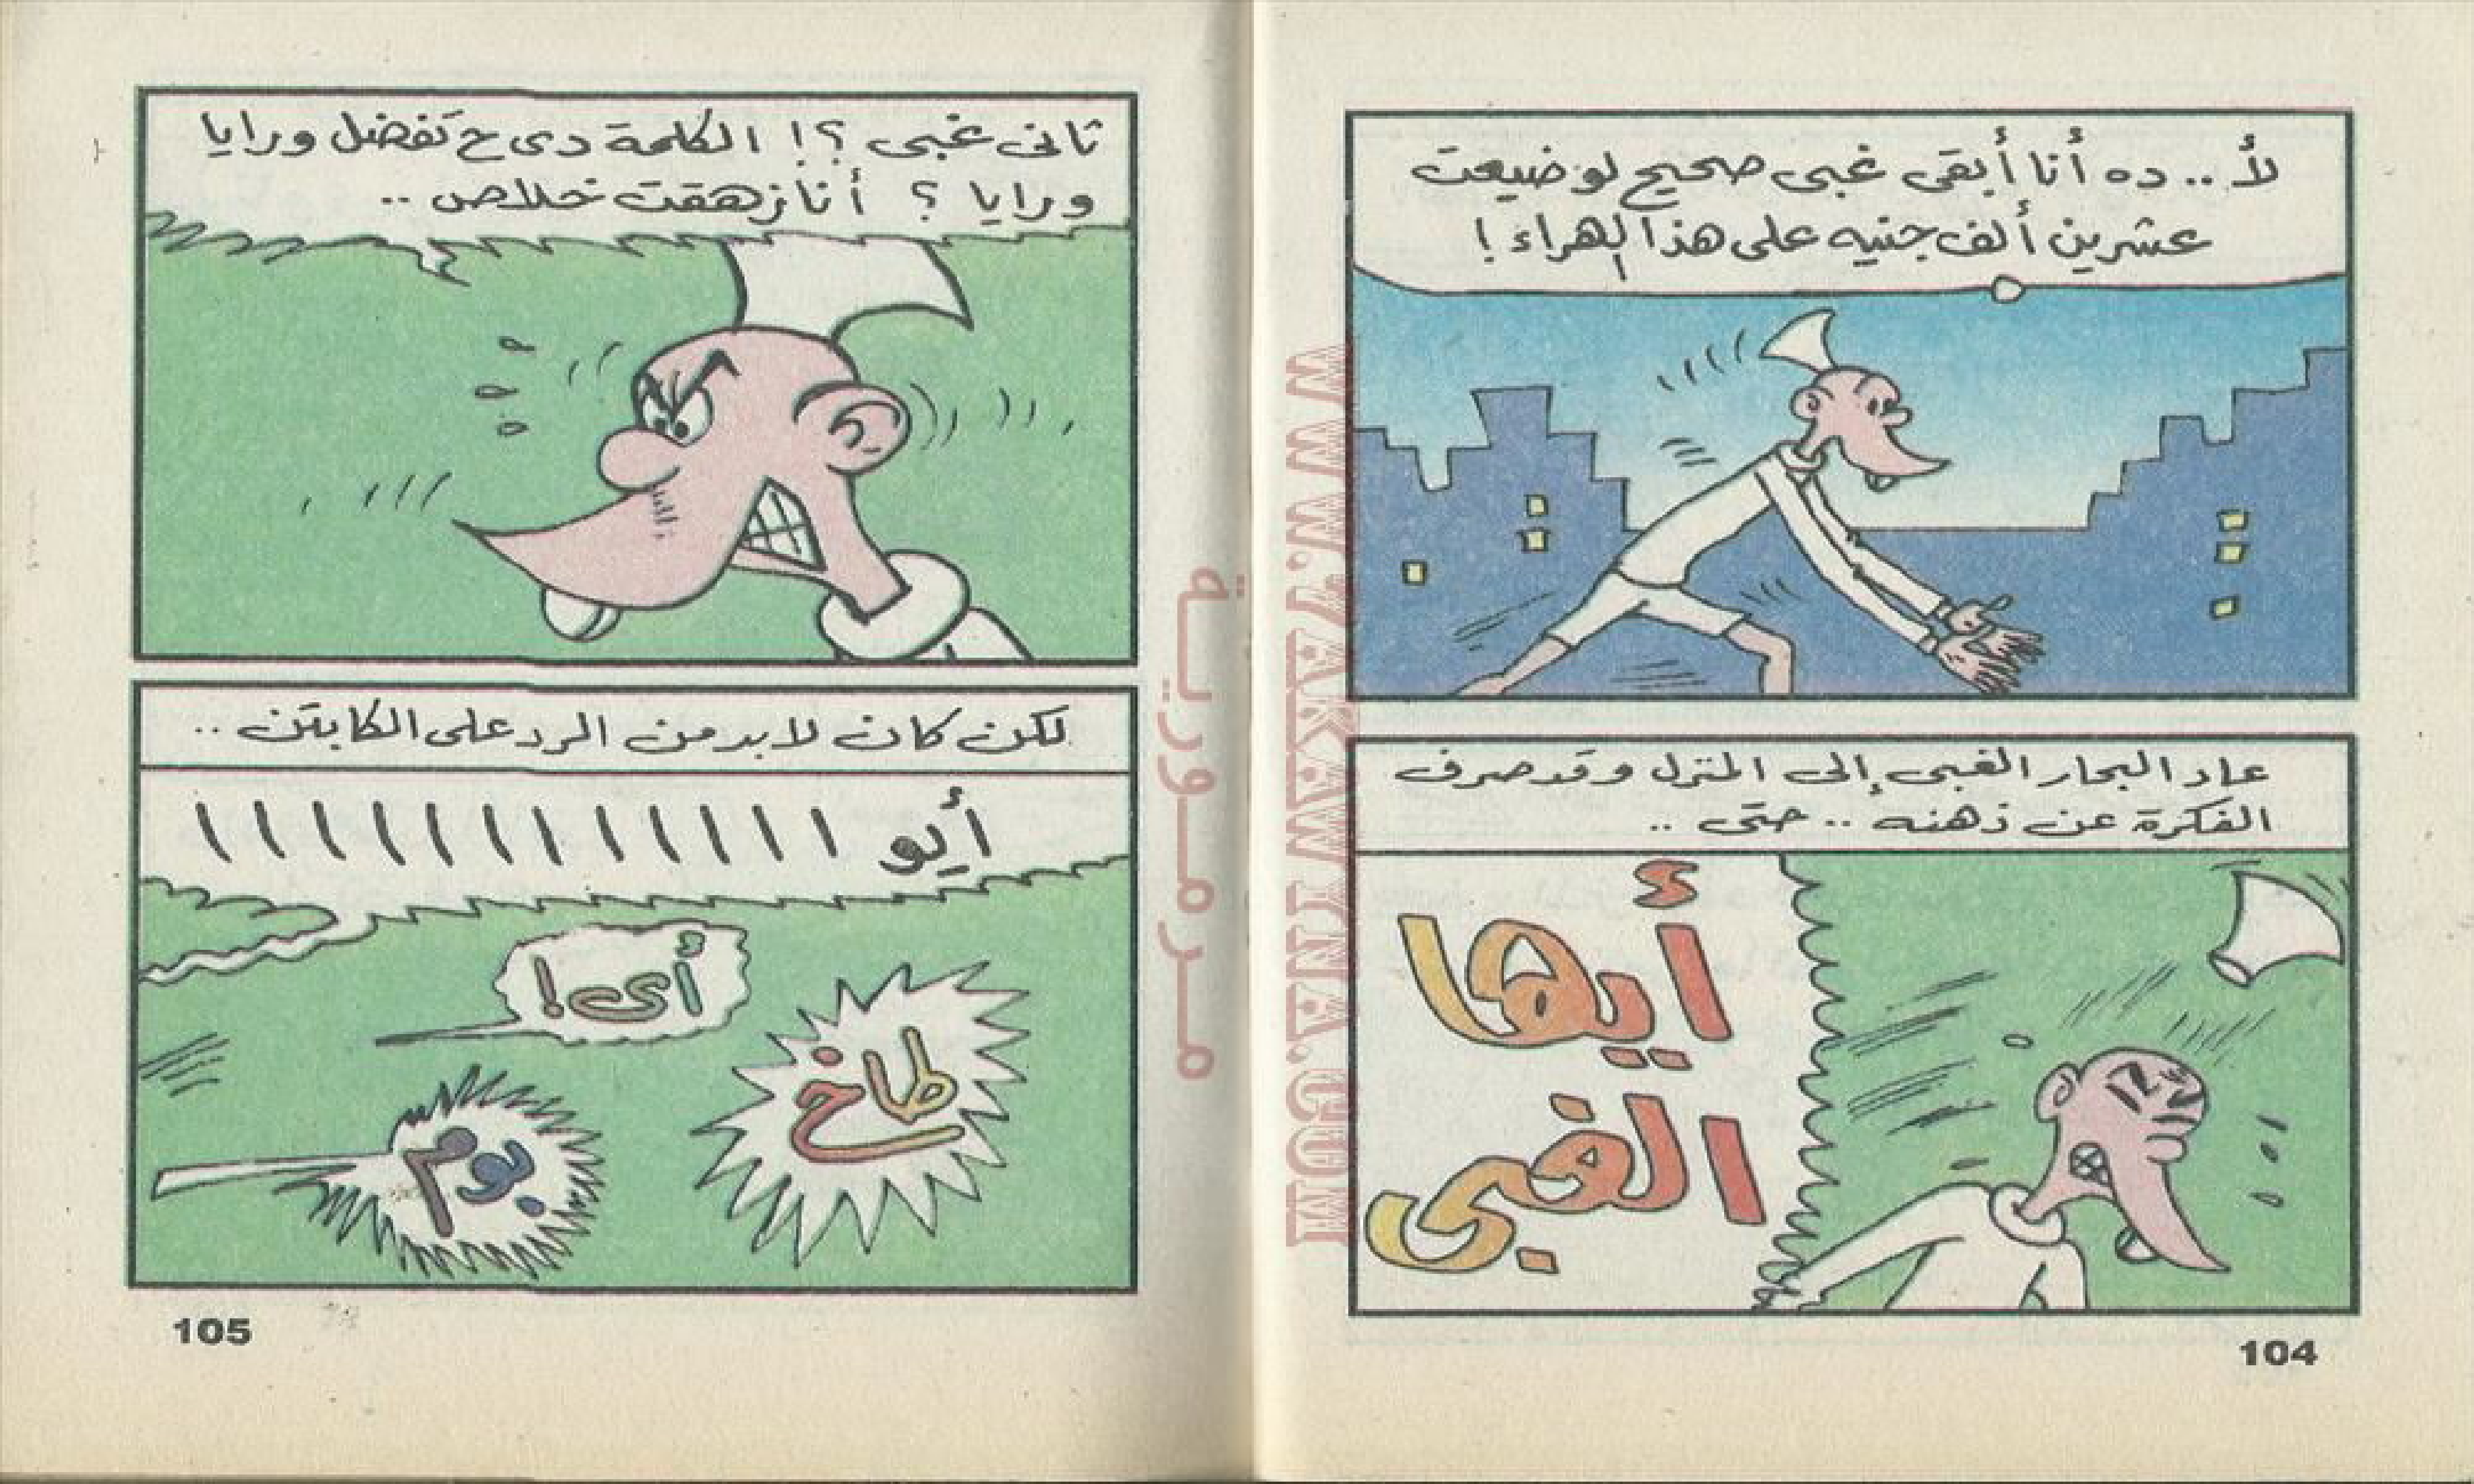 لأ.. ده أنا أبقى غبى صحيح لو ضيعت
عشرين ألف جنيه على هذا الهراء!
عاد البحار الغبى إلى المنزل وقد صرف
الفكرة عن ذهنه .. حتى ..
أيها
الغبى
104
ثانى غبى ؟! الكلمة دى ح تفضل ورايا
ورايا ؟ أنا زهقت خلاص ..
لكن كان لابد من الرد على الكابتن ..
أيو ا ا ا ا ا ا ا ا ا ا ا ا
أى!
طاخ
بوم
105
مرمورية